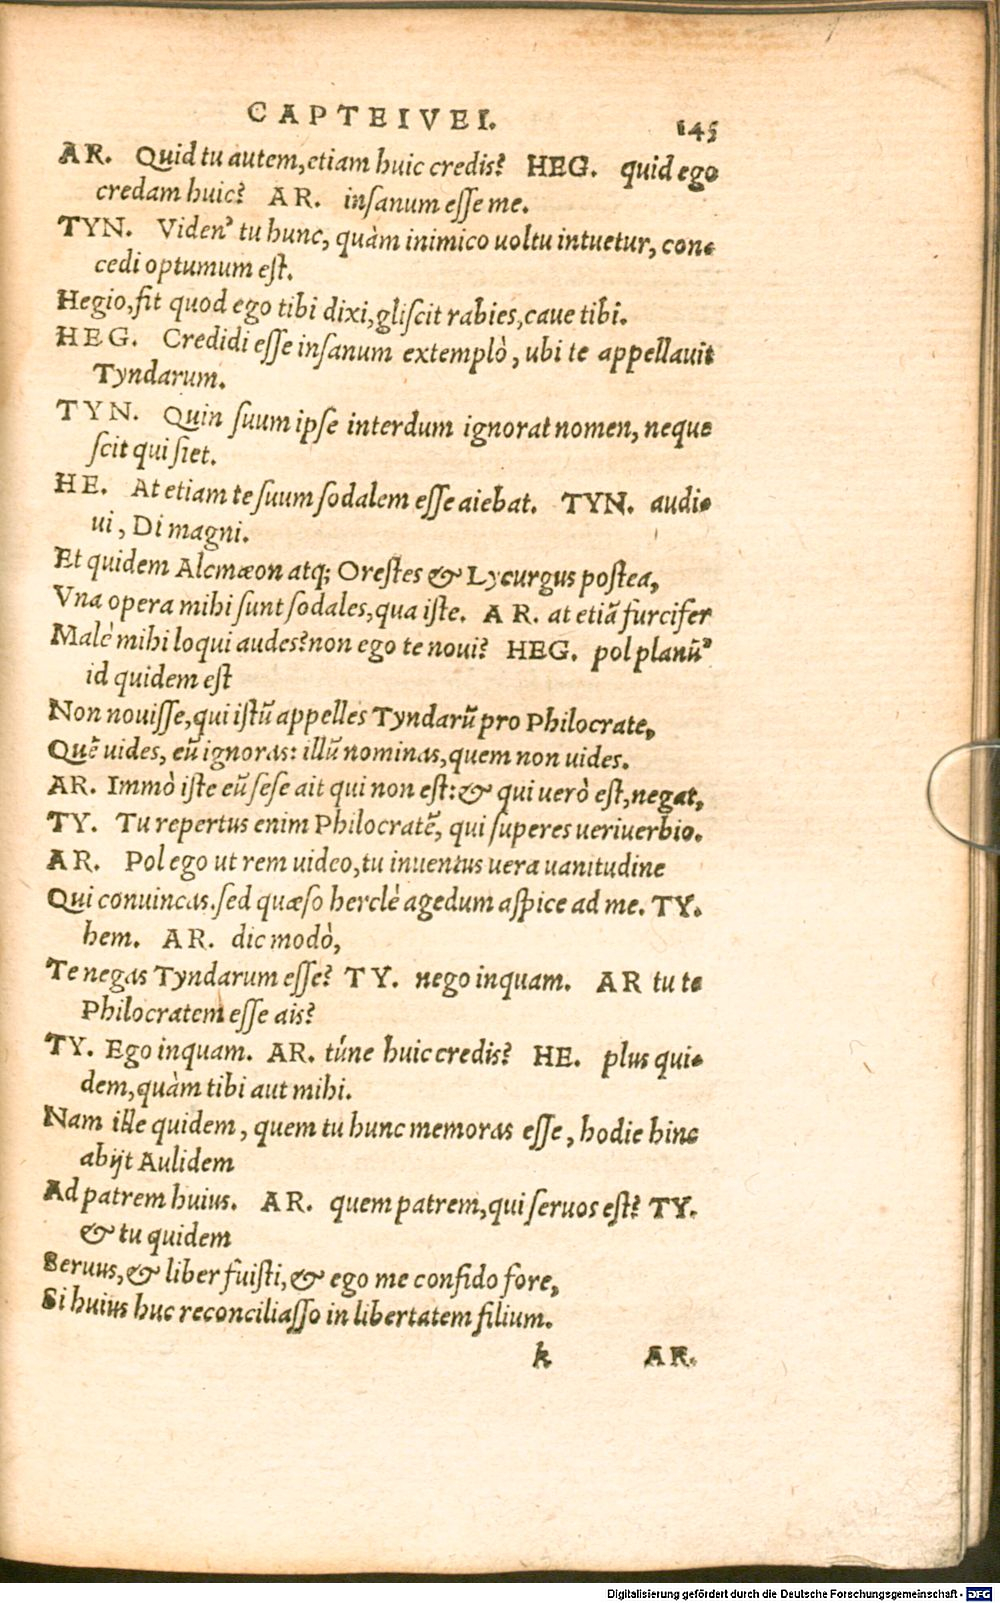 CAPTEIVEI.
145
AR. Quid tu autem, etiam huic credis? HEG. quid ego
credam huic? AR. insanum esse me.
TYN. Viden' tu hunc, quàm inimico uoltu intuetur, con=
cedi optumum est.
Hegio, fit quod ego tibi dixi, gliscit rabies, caue tibi.
HEG. Credidi esse insanum extemplò, ubi te appellauit
Tyndarum.
TYN. Quin suum ipse interdum ignorat nomen, neque
scit qui siet.
HE. At etiam te suum sodalem esse aiebat. TYN. audi=
ui, Di magni.
Et quidem Alcmæon atq; Orestes & Lycurgus postea,
Vna opera mihi sunt sodales, qua iste. AR. at etiã furcifer
Malè mihi loqui audes? non ego te noui? HEG. pol planũ
id quidem est
Non nouisse, qui istũ appelles Tyndarũ pro Philocrate,
Quẽ uides, eũ ignoras: illũ nominas, quem non uides.
AR. Immò iste eũ sese ait qui non est: & qui uerò est, negat,
TY. Tu repertus enim Philocratẽ, qui superes ueriuerbio.
AR. Pol ego ut rem uideo, tu inuentus uera uanitudine
Qui conuincas. sed quæso herclè agedum aspice ad me. TY.
hem. AR. dic modò,
Te negas Tyndarum esse? TY. nego inquam. AR tu te
Philocratem esse ais?
TY. Ego inquam. AR. túne huic credis? HE. plus qui=
dem, quàm tibi aut mihi.
Nam ille quidem, quem tu hunc memoras esse, hodie hinc
abijt Aulidem
Ad patrem huius. AR. quem patrem, qui seruos est? TY.
& tu quidem
Seruus, & liber fuisti, & ego me confido fore,
Si huius huc reconciliasso in libertatem filium.
k AR.
Digitalisierung gefördert durch die Deutsche Forschungsgemeinschaft - DFG